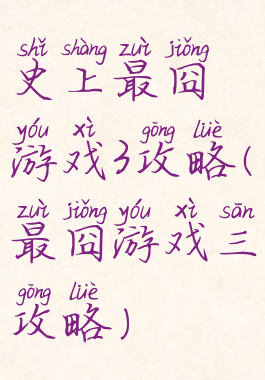 shǐ shàng zuì jiǒng
史上最囧
yóu xì gōng lüè
游戏3攻略(
zuì jiǒng yóu xì sān
最囧游戏三
gōng lüè
攻略)